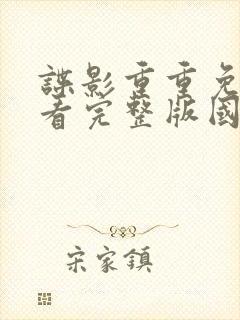 諜影重重免
看完整版國
宋家鎮